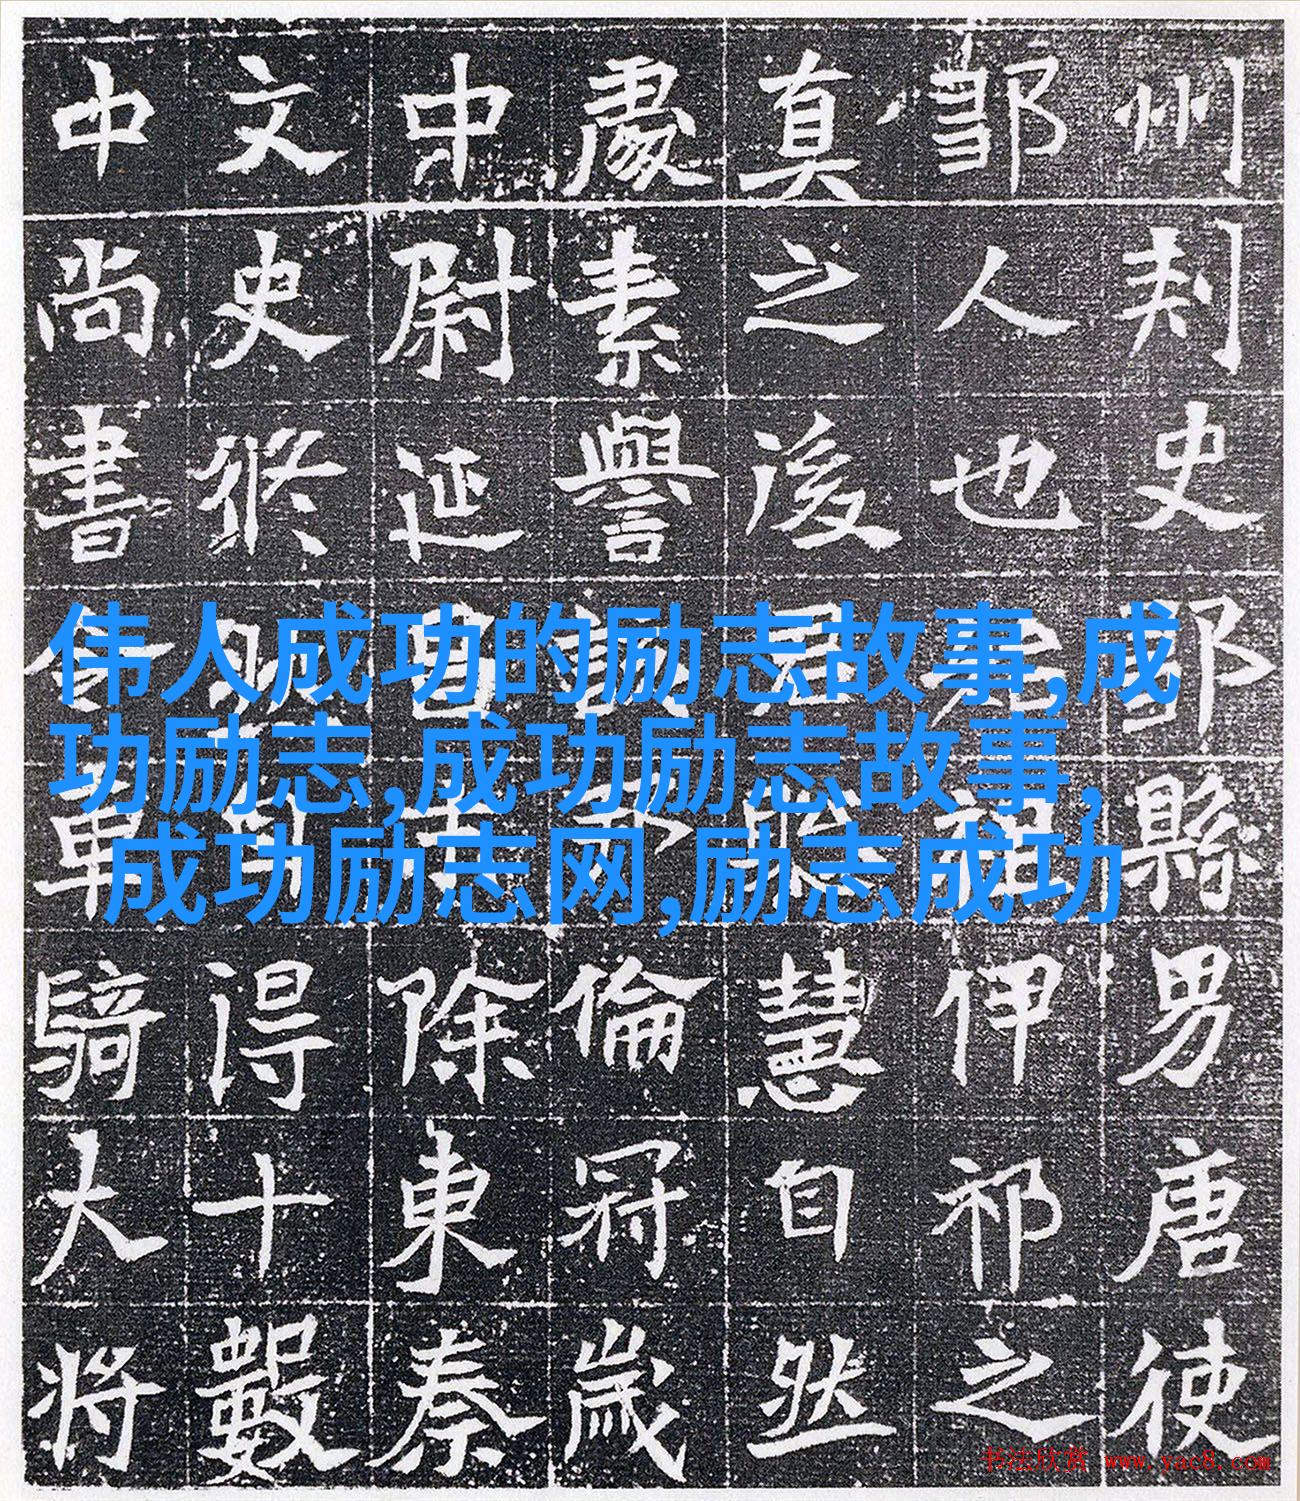 州刾史鄒縣男唐使
鄒人也 伊祁之
真之後 慧自然
處素譽 倫冠歲
中尉延 除東秦
文史 得十數
中尚書 騎大將
伟人成功的励志故事,成
功励志,成功励志故事,
成功励志网,励志成功
书法欣赏 www.yac8.com